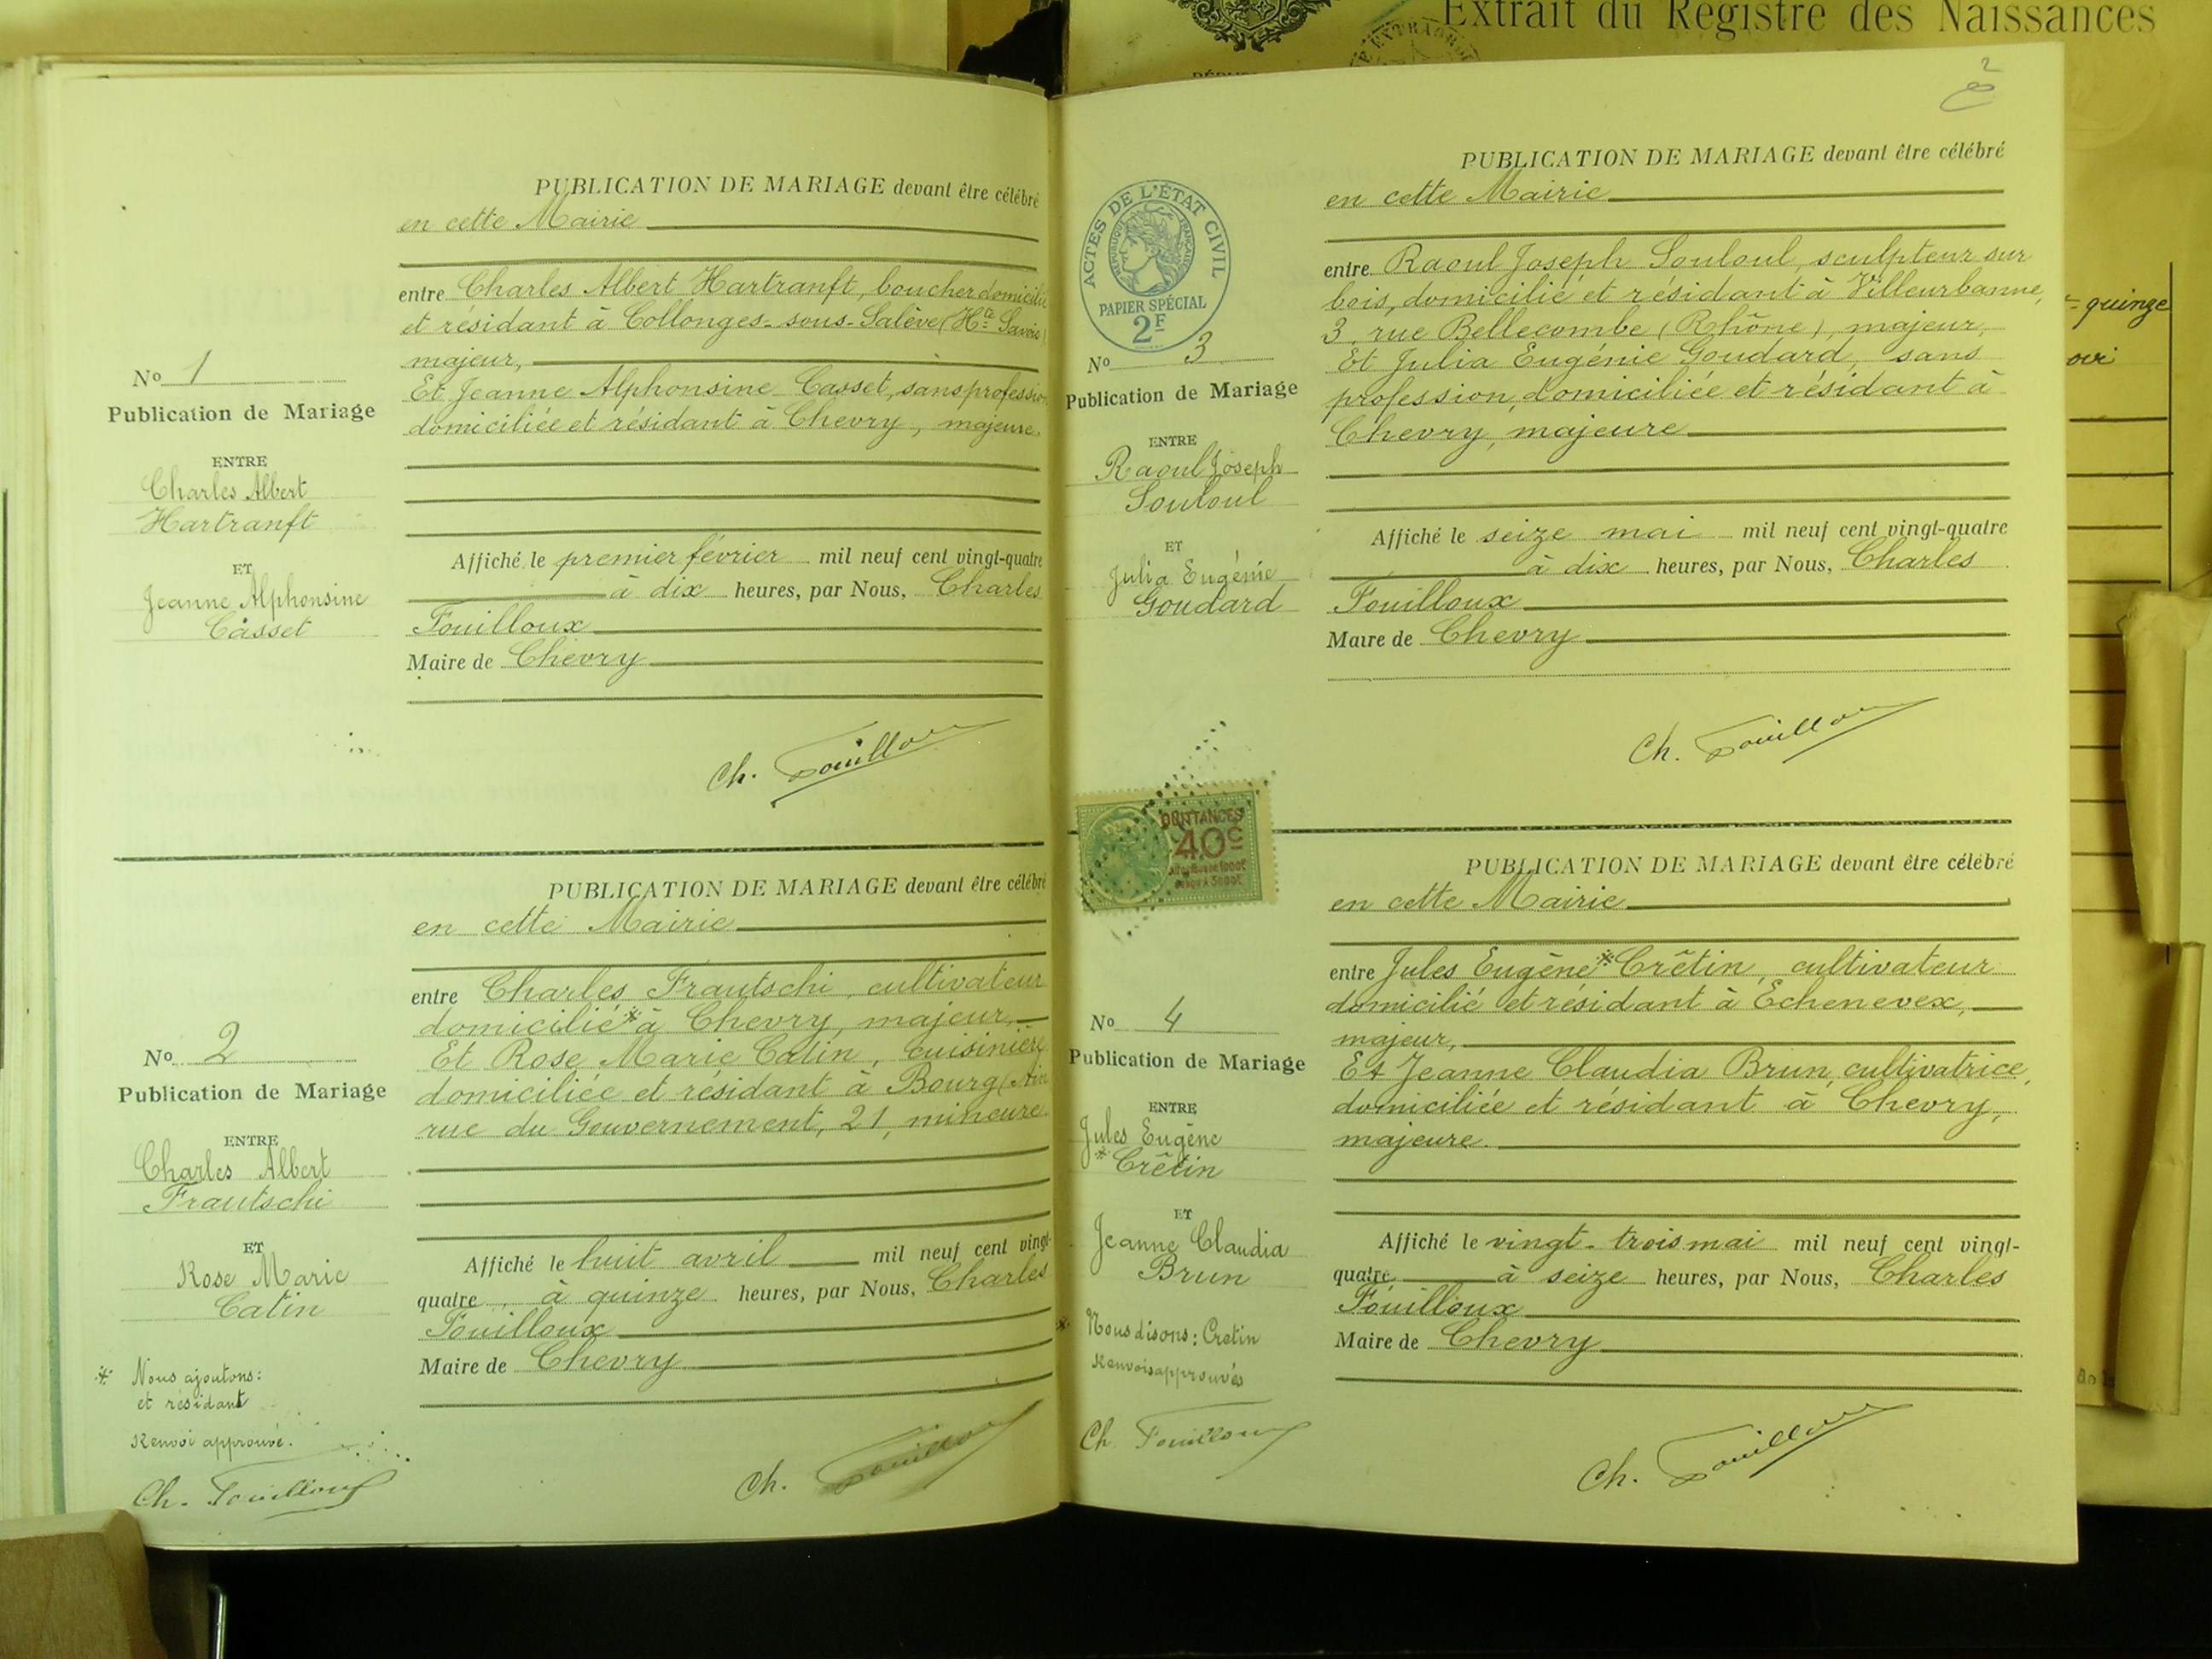 Extrait du Registre des Naissances
PUBLICATION DE MARIAGE devant être célébré
en cette Mairie
entre Charles Albert Hartranft, boucher domicilié
et résidant à Collonges-sous-Salève (Hte Savoie)
majeur,
Et Jeanne Alphonsine Casset, sans profession
domiciliée et résidant à Chevry, majeure.
Affiché le premier février mil neuf cent vingt-quatre
à dix heures, par Nous, Charles
Fouilloux
Maire de Chevry
Ch. Fouilloux
No 1
Publication de Mariage
ENTRE
Charles Albert
Hartranft
ET
Jeanne Alphonsine
Casset
PUBLICATION DE MARIAGE devant être célébré
en cette Mairie
entre Charles Frautschi, cultivateur
domicilié * à Chevry, majeur,
Et Rose Marie Catin, cuisinière
domiciliée et résidant à Bourg (Ain
rue du Gouvernement, 21, mineure.
Affiché le huit avril mil neuf cent vingt-
quatre, à quinze heures, par Nous, Charles
Fouilloux
Maire de Chevry
Ch. Fouilloux
No 2
Publication de Mariage
ENTRE
Charles Albert
Frautschi
ET
Rose Marie
Catin
* Nous ajoutons:
et résidant
Renvoi approuvé.
Ch. Fouilloux
2
PUBLICATION DE MARIAGE devant être célébré
en cette Mairie
entre Raoul Joseph Souloul, sculpteur sur
bois, domicilié et résidant à Villeurbanne,
3, rue Bellecombe (Rhône), majeur,
Et Julia Eugénie Goudard, sans
profession, domiciliée et résidant à
Chevry, majeure
Affiché le seize mai mil neuf cent vingt-quatre
à dix heures, par Nous, Charles
Fouilloux
Maire de Chevry
Ch. Fouilloux
ACTES DE L'ÉTAT CIVIL
RÉPUBLIQUE FRANÇAISE
PAPIER SPÉCIAL
2F
No 3
Publication de Mariage
ENTRE
Raoul Joseph
Souloul
ET
Julia Eugénie
Goudard
QUITTANCES
40c
PUBLICATION DE MARIAGE devant être célébré
en cette Mairie
entre Jules Eugène * Crêtin, cultivateur
domicilié et résidant à Echenevex,
majeur,
Et Jeanne Claudia Brun, cultivatrice,
domiciliée et résidant à Chevry,
majeure.
Affiché le vingt-trois mai mil neuf cent vingt-
quatre à seize heures, par Nous, Charles
Fouilloux
Maire de Chevry
Ch. Fouilloux
No 4
Publication de Mariage
ENTRE
Jules Eugène
* Crêtin
ET
Jeanne Claudia
Brun
* Nous disons: Cretin
Renvois approuvés
Ch. Fouilloux
quinze